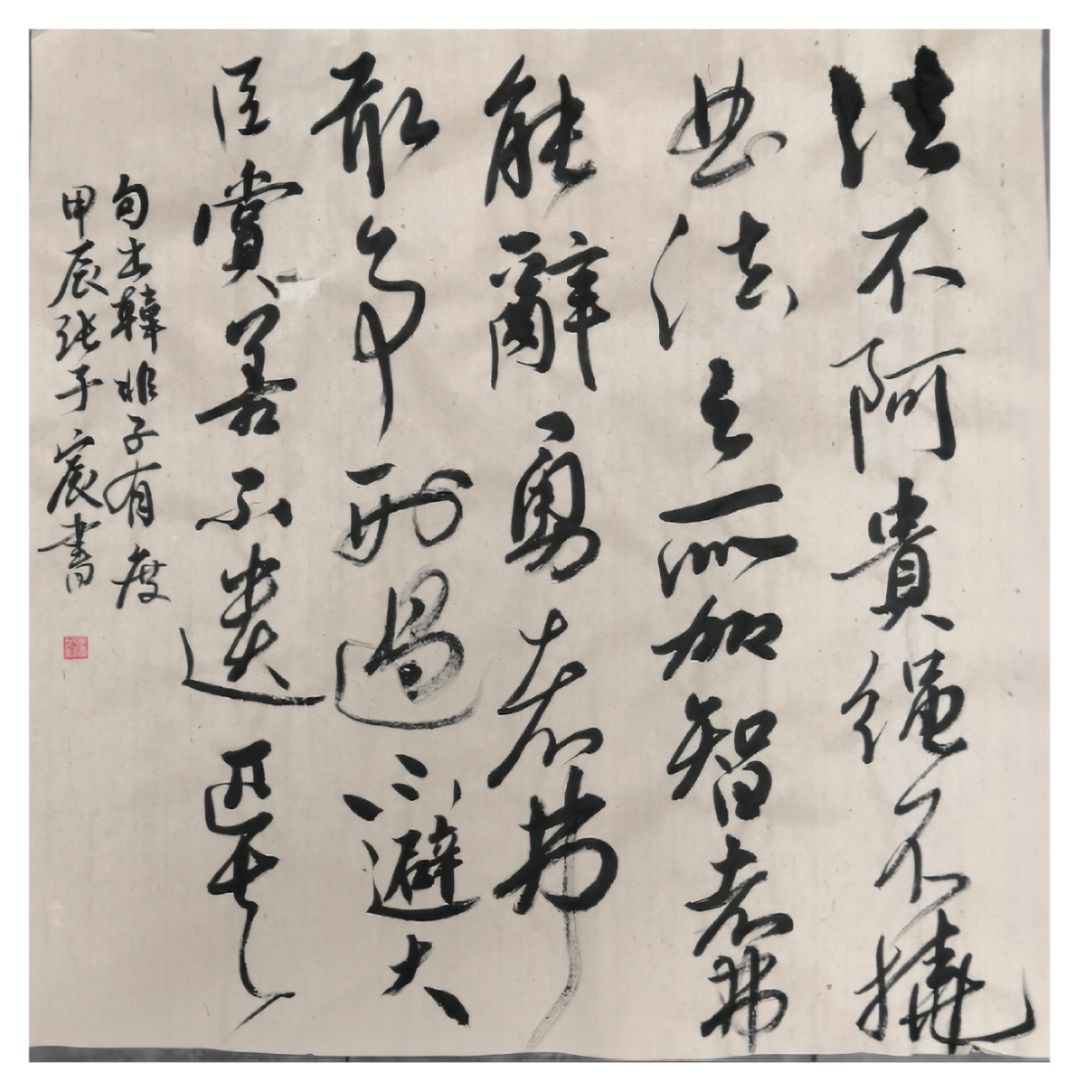 法不阿貴绳不撓
曲法之所加智者弗
能辭勇者弗
敢争刑過不避大
臣賞善不遺匹夫
句出韓非子有度
甲辰张子宸書